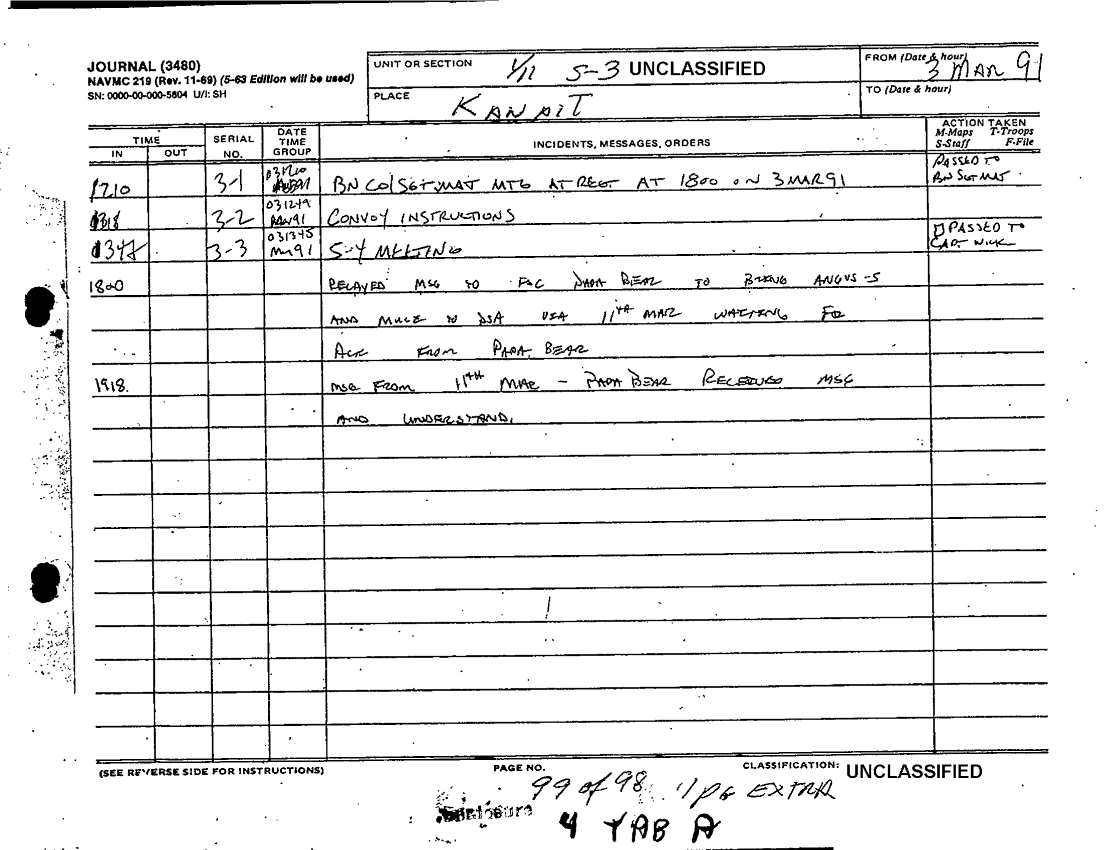 JOURNAL (3480)
NAVMC 219 (Rev. 11-69) (5-63 Edition will be used)
SN: 0000-00-000-5604 U/I: SH
UNIT OR SECTION
1/11 S-3 UNCLASSIFIED
FROM (Date & hour)
3 MAR 91
PLACE
TO (Date & hour)
TIME
IN
OUT
SERIAL NO.
DATE TIME GROUP
INCIDENTS, MESSAGES, ORDERS
ACTION TAKEN
M-Maps T-Troops
S-Staff F-File
1210 3-1 031210 BN CO/SGT MAJ MTG AT REGT AT 1800 ON 3 MAR 91 PASSED TO BN SGT MAJ
1318 3-2 031249 MAR 91 CONVOY INSTRUCTIONS
1347 3-3 031345 MAR 91 S-4 MEETING PASSED TO CAPT
1800 RELAYED MSG TO FSC PAPA BEAR TO BRING ANGUS-S
AND MULE TO DSA VIA 11TH MAR WAITING FOR
ACK FROM PAPA BEAR
1918. MSG FROM 11TH MAR - PAPA BEAR RECEIVED MSG
AND UNDERSTAND.
(SEE REVERSE SIDE FOR INSTRUCTIONS)
PAGE NO.
99 of 98 1 PG EXTRA
CLASSIFICATION: UNCLASSIFIED
4 TAB A